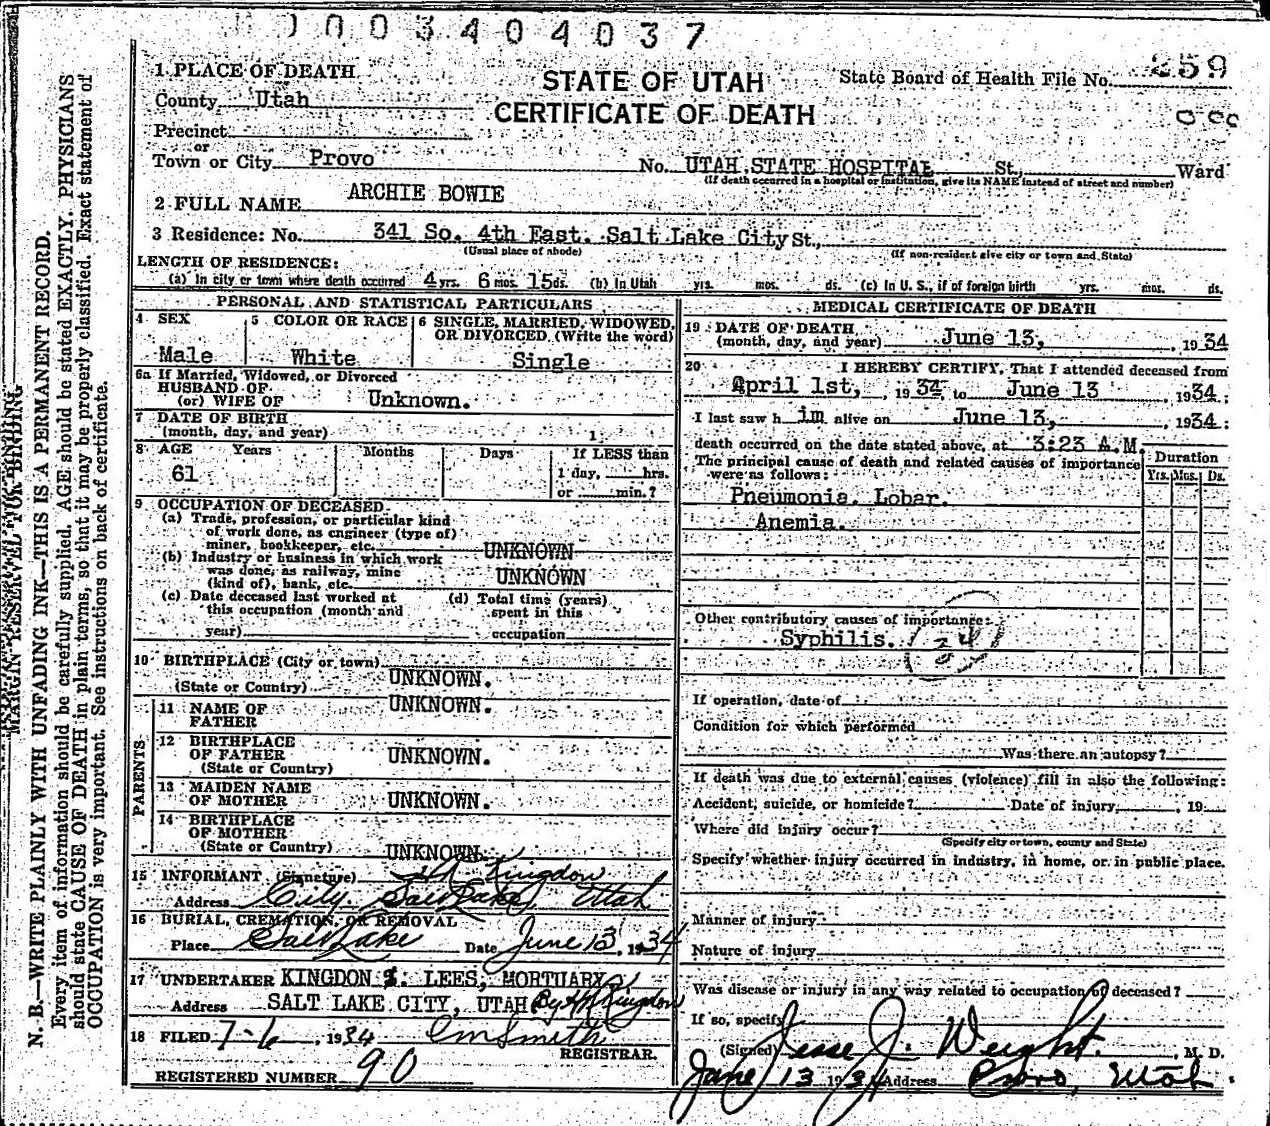 0003404037
1 PLACE OF DEATH
STATE OF UTAH
CERTIFICATE OF DEATH
State Board of Health File No. 259
County Utah
Precinct
or
Town or City Provo No. UTAH STATE HOSPITAL St., Ward
(If death occurred in a hospital or institution, give its NAME instead of street and number)
2 FULL NAME ARCHIE BOWIE
3 Residence: No. 341 So. 4th East. Salt Lake City St.,
(Usual place of abode) (If non-resident give city or town and State)
LENGTH OF RESIDENCE:
(a) In city or town where death occurred 4 yrs. 6 mos. 15 ds. (b) In Utah yrs. mos. ds. (c) In U. S., if of foreign birth yrs. mos. ds.
PERSONAL AND STATISTICAL PARTICULARS
4 SEX
Male
5 COLOR OR RACE
White
6 SINGLE, MARRIED, WIDOWED, OR DIVORCED (Write the word)
Single
6a If Married, Widowed, or Divorced
HUSBAND OF
(or) WIFE OF Unknown.
7 DATE OF BIRTH
(month, day, and year) 1
8 AGE Years Months Days If LESS than
61 1 day, hrs.
or min.?
9 OCCUPATION OF DECEASED
(a) Trade, profession, or particular kind
of work done, as engineer (type of)
miner, bookkeeper, etc. UNKNOWN
(b) Industry or business in which work
was done, as railway, mine
(kind of), bank, etc. UNKNOWN
(c) Date deceased last worked at
this occupation (month and
year)
(d) Total time (years)
spent in this
occupation
10 BIRTHPLACE (City or town)
(State or Country) UNKNOWN.
PARENTS
11 NAME OF
FATHER UNKNOWN.
12 BIRTHPLACE
OF FATHER UNKNOWN.
(State or Country)
13 MAIDEN NAME
OF MOTHER UNKNOWN.
14 BIRTHPLACE
OF MOTHER
(State or Country) UNKNOWN.
15 INFORMANT (Signature) Kingdon
Address City, Salt Lake, Utah
16 BURIAL, CREMATION, OR REMOVAL
Place Salt Lake Date June 13, 1934
17 UNDERTAKER KINGDON & LEES, MORTUARY
Address SALT LAKE CITY, UTAH By Kingdon
18 FILED 7-6, 1934 CM Smith
REGISTRAR.
REGISTERED NUMBER 90
MEDICAL CERTIFICATE OF DEATH
19 DATE OF DEATH
(month, day, and year) June 13, , 1934
20 I HEREBY CERTIFY, That I attended deceased from
April 1st, , 1934, to June 13 , 1934:
I last saw h im alive on June 13, , 1934:
death occurred on the date stated above, at 3:23 A.M.
The principal cause of death and related causes of importance
were as follows:
Duration
Yrs. Mos. Ds.
Pneumonia. Lobar.
Anemia.
Other contributory causes of importance:
Syphilis. 34
If operation, date of
Condition for which performed
Was there an autopsy?
If death was due to external causes (violence) fill in also the following:
Accident, suicide, or homicide? Date of injury, , 19
Where did injury occur?
(Specify city or town, county and State)
Specify whether injury occurred in industry, in home, or in public place.
Manner of injury
Nature of injury
Was disease or injury in any way related to occupation of deceased?
If so, specify
(Signed) Jesse J. Weight. , M. D.
June 13 1934 Address Provo, Utah.
MARGIN RESERVED FOR BINDING
N. B.—WRITE PLAINLY WITH UNFADING INK—THIS IS A PERMANENT RECORD.
Every item of information should be carefully supplied. AGE should be stated EXACTLY. PHYSICIANS
should state CAUSE OF DEATH in plain terms, so that it may be properly classified. Exact statement of
OCCUPATION is very important. See instructions on back of certificate.